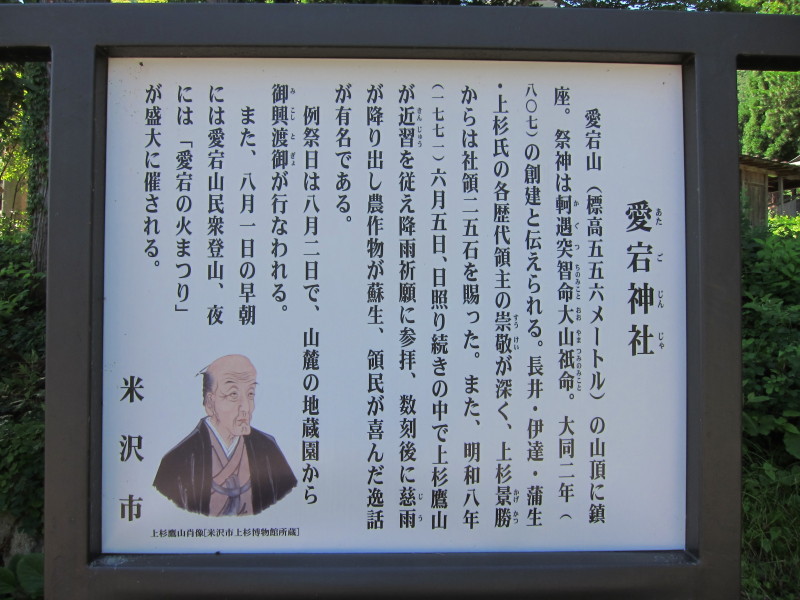 愛宕神社
あたごじんじゃ
愛宕山（標高五五六メートル）の山頂に鎮
座。祭神は軻遇突智命大山祇命。大同二年（
かぐつちのみこと おおやまつみのみこと
八〇七）の創建と伝えられる。長井・伊達・蒲生
・上杉氏の各歴代領主の崇敬が深く、上杉景勝
すうけい かげかつ
からは社領二五石を賜った。また、明和八年
（一七七一）六月五日、日照り続きの中で上杉鷹山
が近習を従え降雨祈願に参拝、数刻後に慈雨
きんじゅう じう
が降り出し農作物が蘇生、領民が喜んだ逸話
が有名である。
例祭日は八月二日で、山麓の地蔵園から
御興渡御が行なわれる。
みこしとぎょ
また、八月一日の早朝
には愛宕山民衆登山、夜
には「愛宕の火まつり」
が盛大に催される。
米沢市
上杉鷹山肖像[米沢市上杉博物館所蔵]